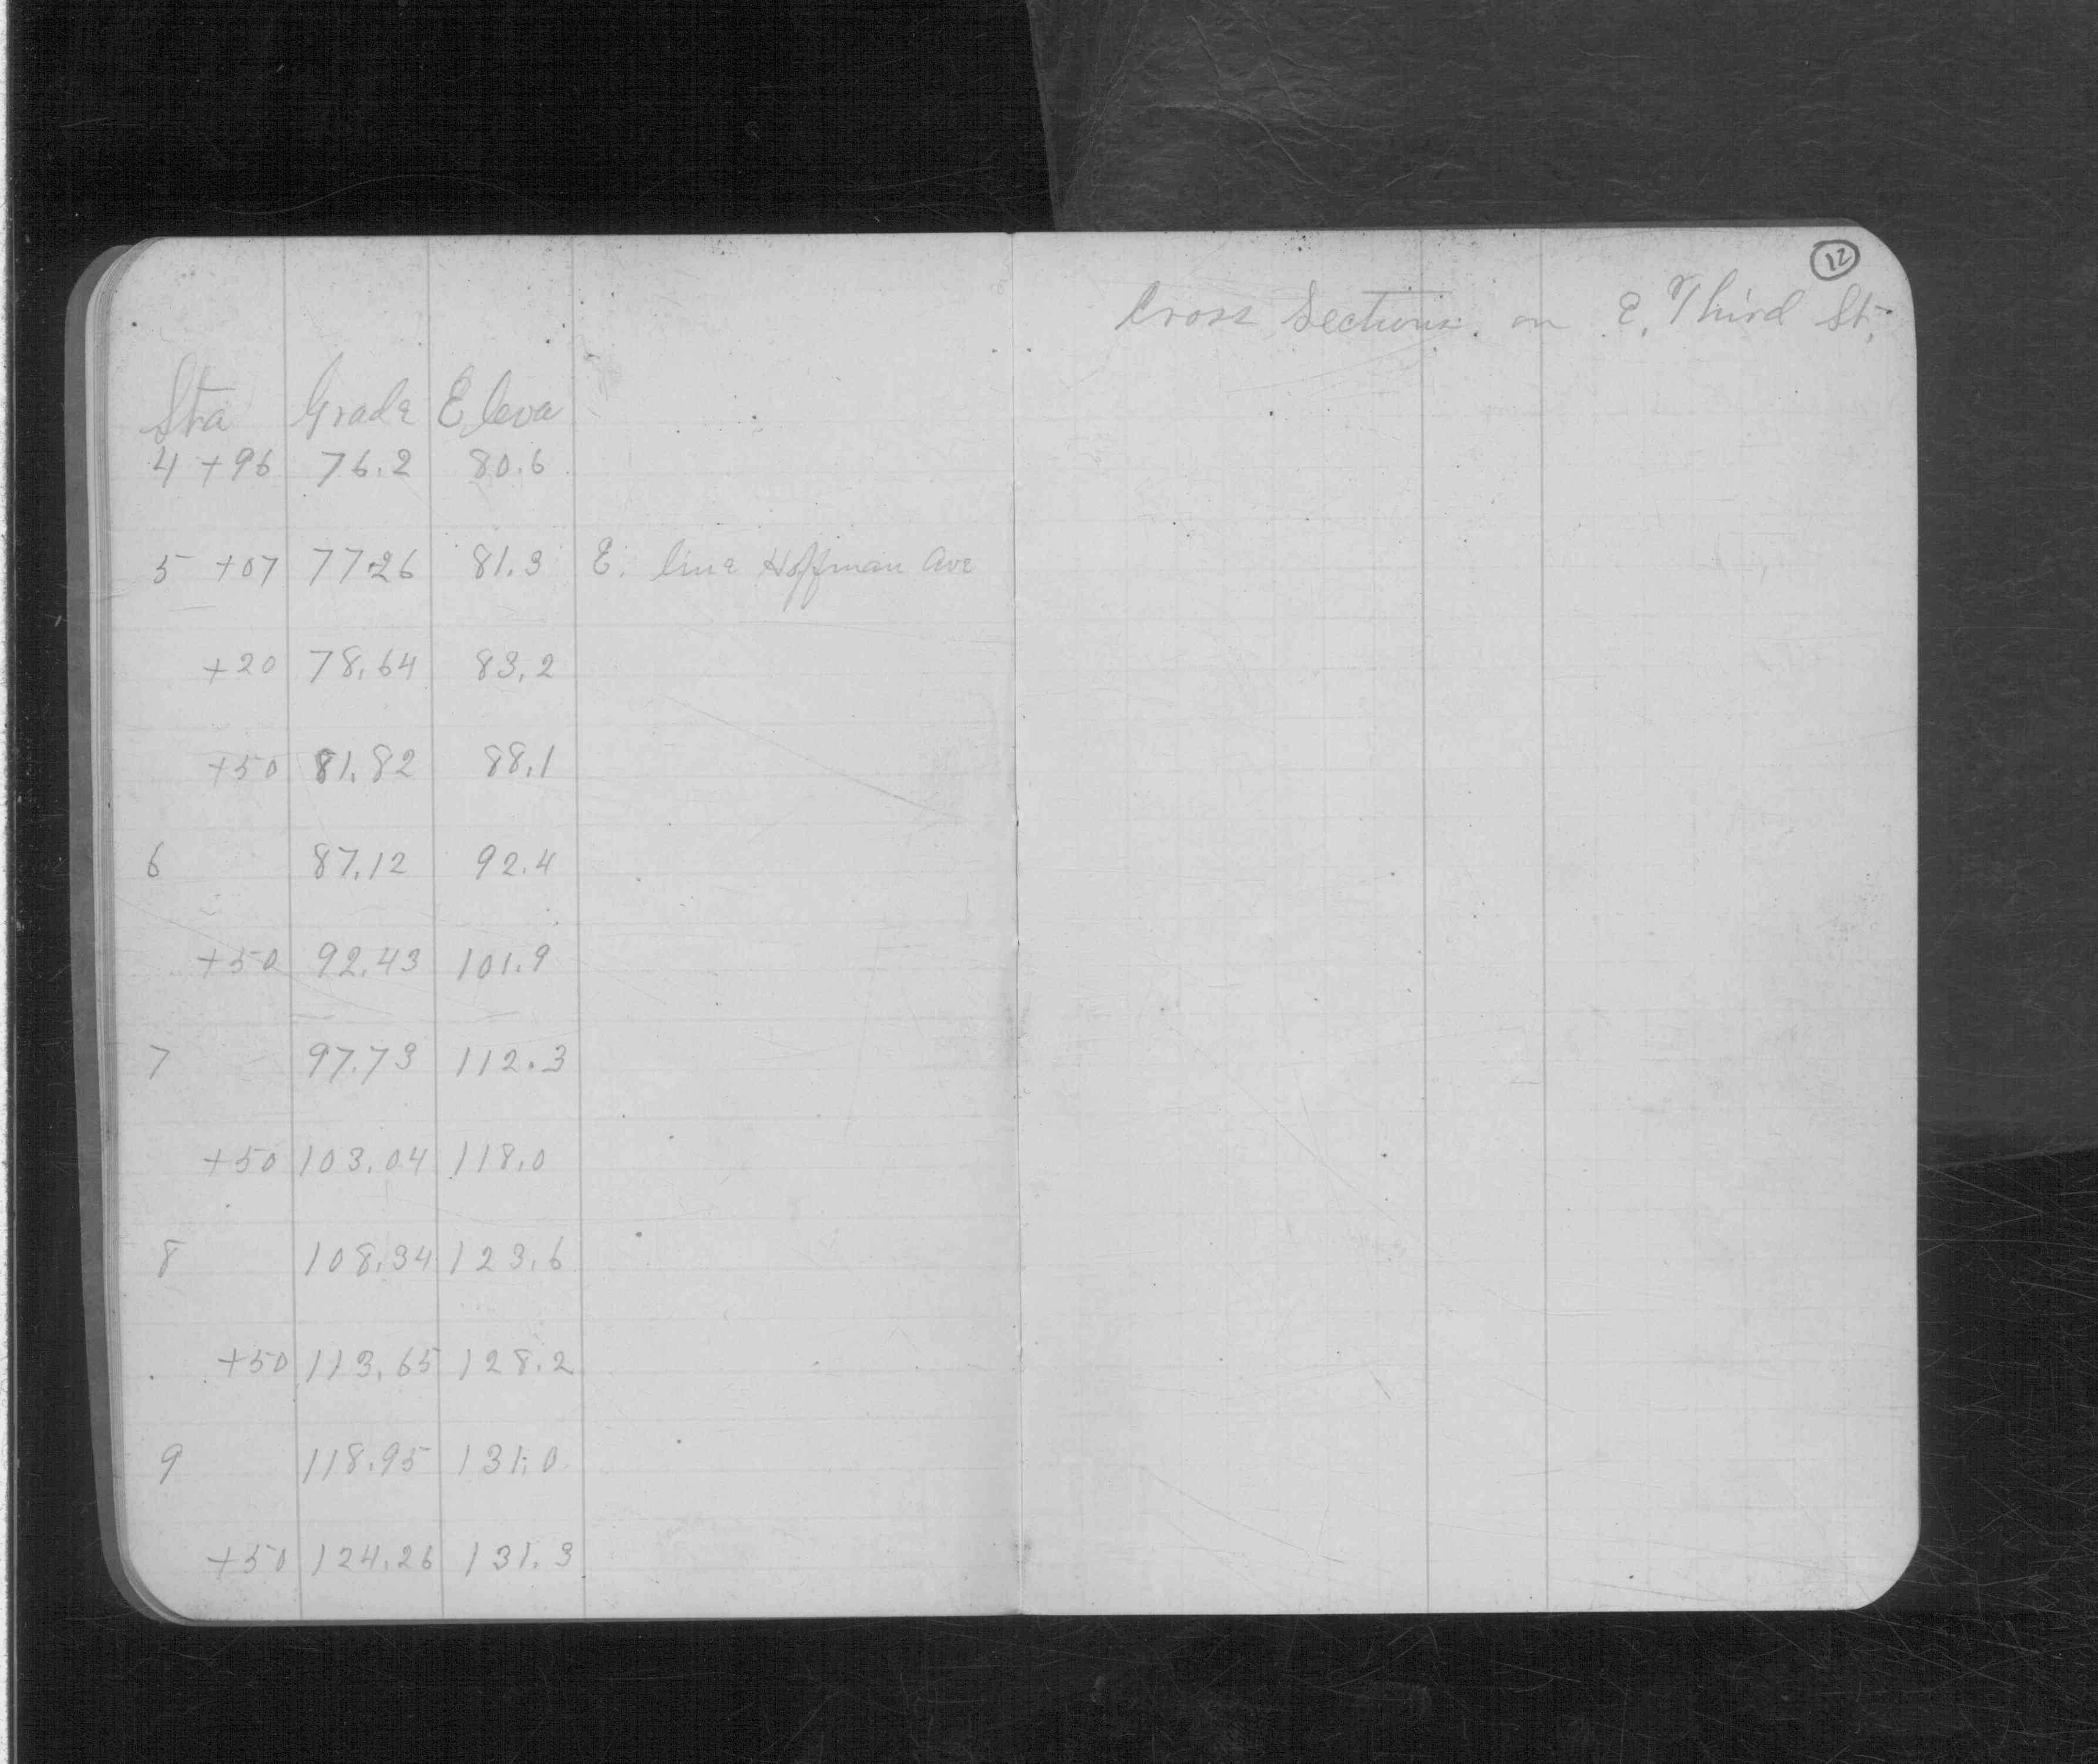 12
Cross Sections on E. Third St.
Sta Grade Eleva
4 +96 76.2 80.6
5 +07 77.26 81.3 E. line Hoffman Ave
+20 78.64 83.2
+50 81.82 88.1
6 87.12 92.4
+50 92.43 101.9
7 97.73 112.3
+50 103.04 118.0
8 108.34 123.6
+50 113.65 128.2
9 118.95 131.0
+50 124.26 131.3